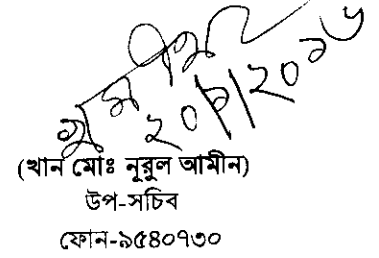 ২০/১/২০১৬
(খান মোঃ নূরুল আমীন)
উপ-সচিব
ফোন-৯৫৪০৭৩০